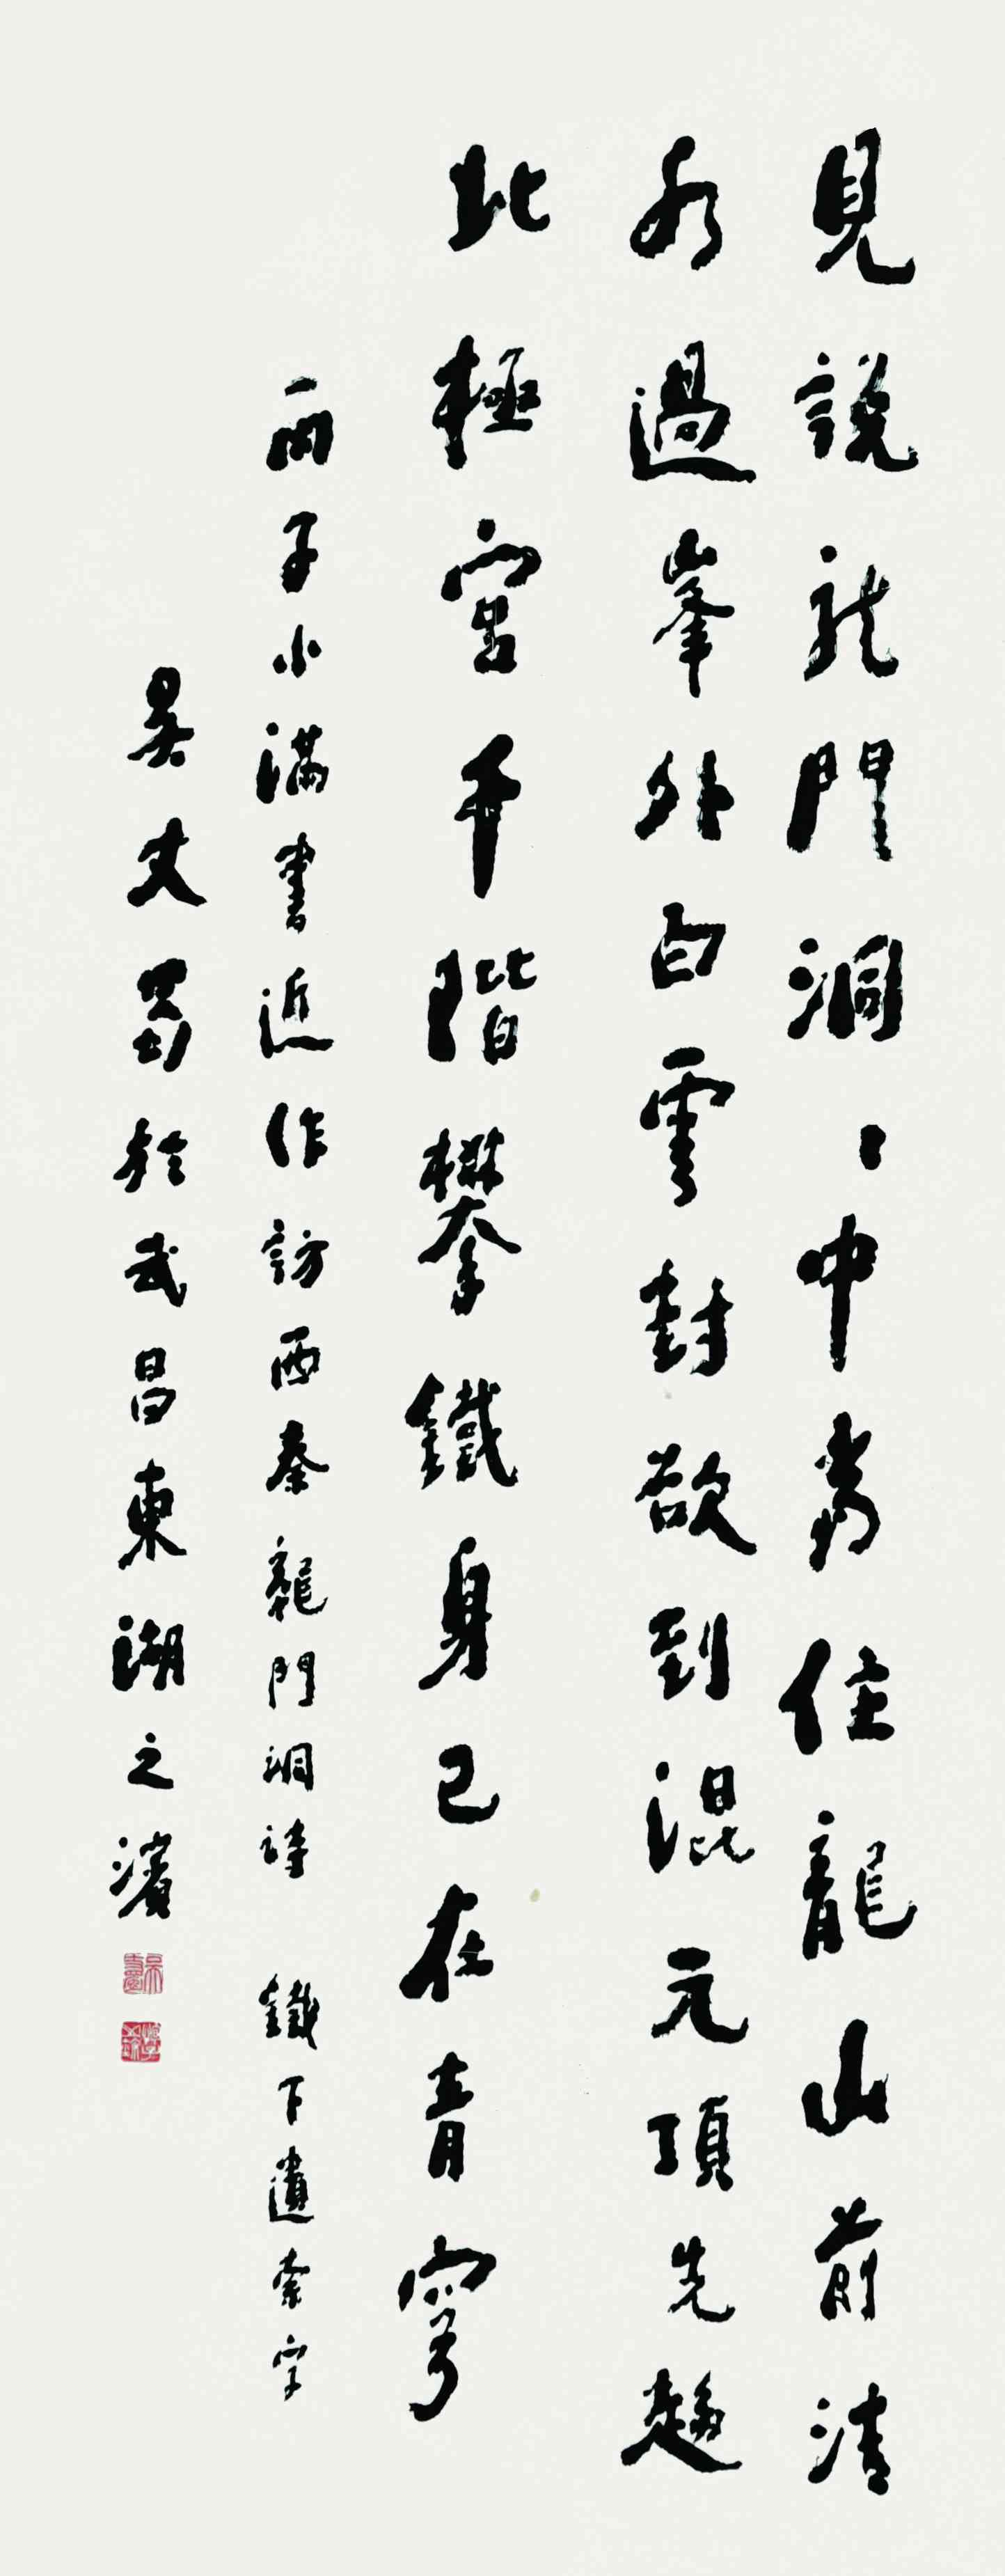 見說龍門洞〻中常住龍山前清
水過峯外白雲封欲到混元頂先趍
北極宮千階攀鐵身已在青穹
丙子小滿書近作訪西秦龍門洞詩 鐵下遺索字
吳丈蜀於武昌東湖之濱